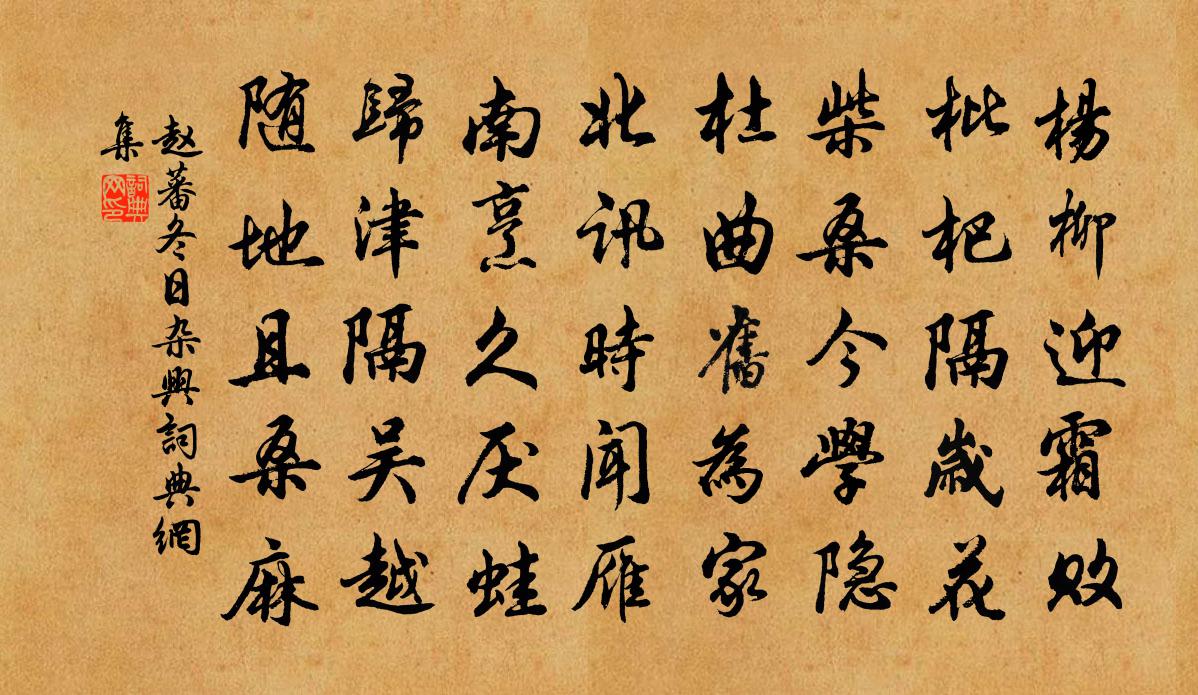 楊柳迎霜敗
枇杷隔歲花
柴桑今學隐
杜曲舊為家
北訊時聞雁
南烹久厌蛙
歸津隔吴越
随地且桑麻
赵蕃冬日杂興詞典網
集
詞典網印